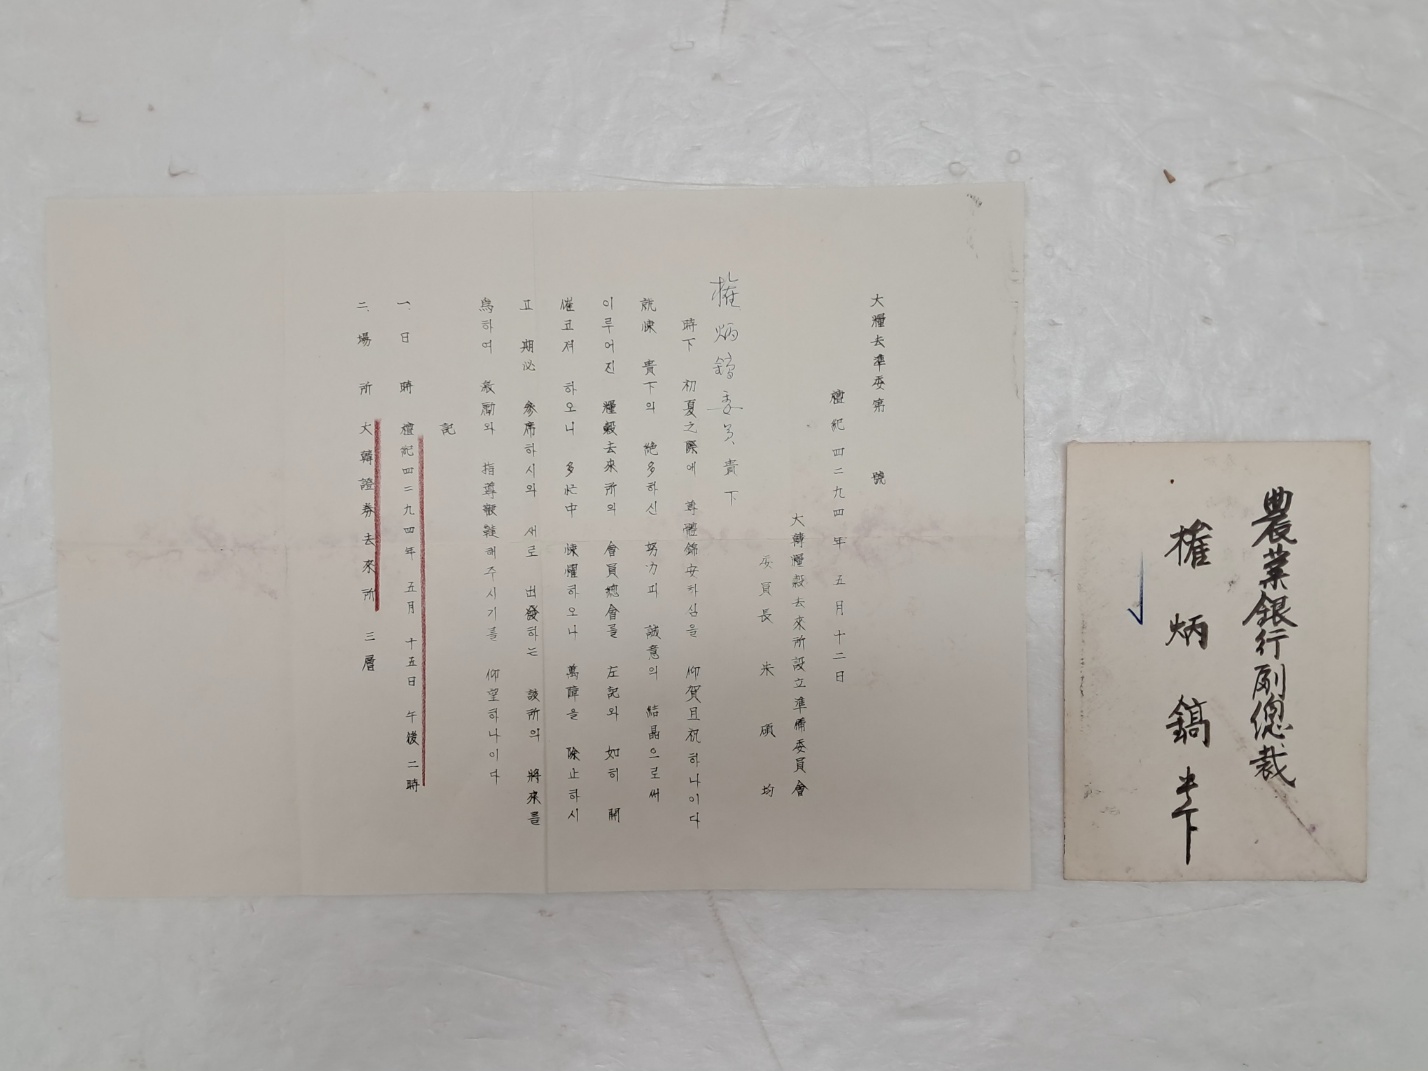 大糧去準委第　號
檀紀四二九四年 五月十二日
大韓糧穀去來所設立準備委員會
委員長 朱碩均
權炳鎬委員 貴下
時下 初夏之際에 尊體錦安하심을 仰賀且祝하나이다
就悚 貴下의 絶多하신 努力과 誠意의 結晶으로써
이루어진 糧穀去來所의 會員總會를 左記와 如히 開
催코저 하오니 多忙中 悚懼하오나 萬障을 除止하시
고 期必 參席하시와 새로 出發하는 該所의 將來를
爲하여 激勵와 指導鞭撻해주시기를 仰望하나이다
記
一. 日時 檀紀四二九四年 五月 十五日 午後 二時
二. 場所 大韓證券去來所 三層
農業銀行副總裁
權炳鎬 貴下